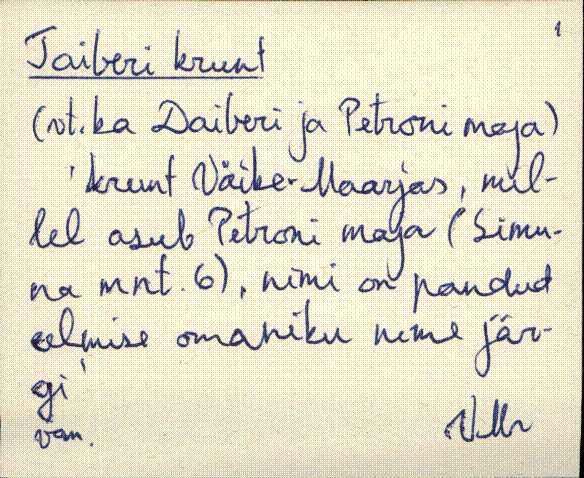 1
Taiberi krunt
(vt. ka Daiberi ja Petroni maja)
'krunt Väike-Maarjas, mil-
lel asub Petroni maja (Simu-
na mnt. 6), nimi on pandud
eelmise omaniku nime jär-
gi'
van. VMr